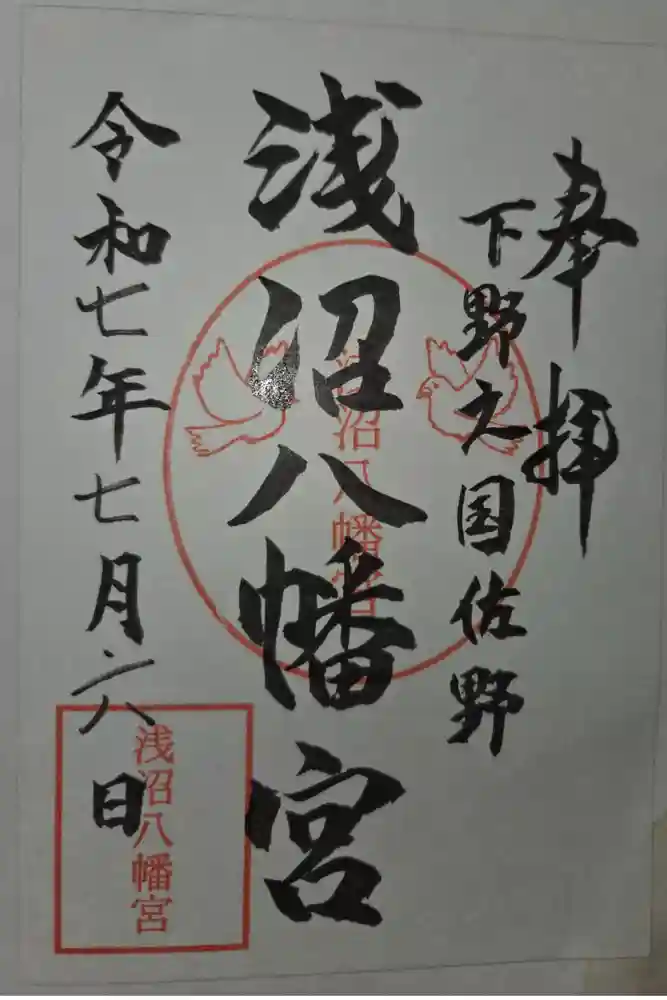 奉拝
下野之国佐野
浅沼八幡宮
浅沼八幡宮
令和七年七月六日
浅沼八幡宮